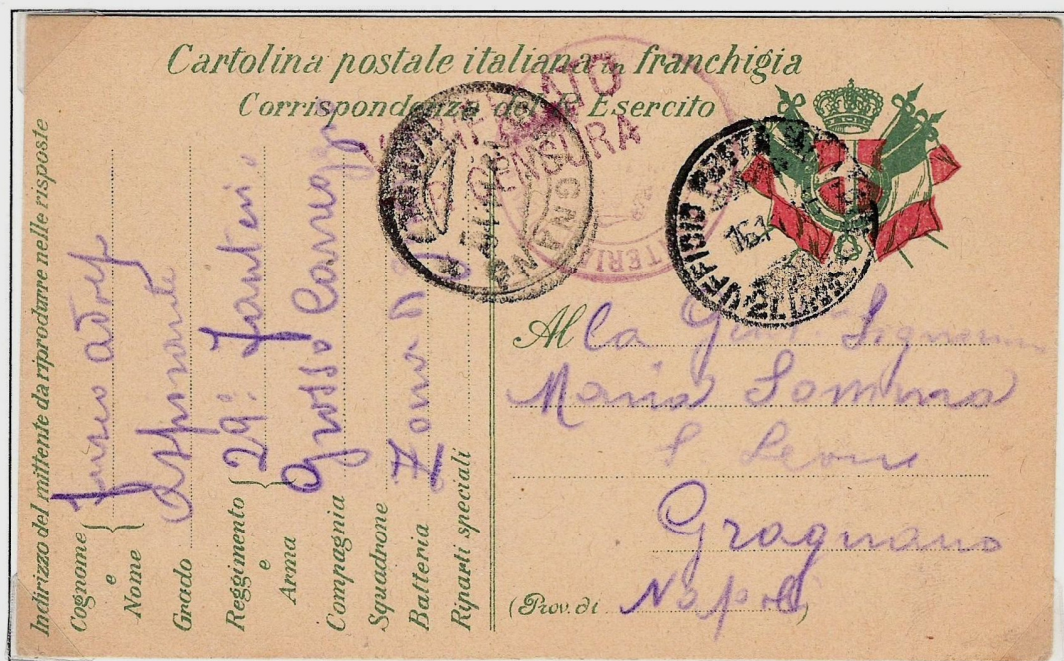 Cartolina postale italiana in franchigia
Corrispondenza del R. Esercito
CENSURA
GRAGNANO
UFFICIO POSTA MILITARE
Indirizzo del mittente da riprodurre nelle risposte
Cognome e Nome
Grado Aspirante
Reggimento e Arma 29º Fanteria
Grosso Carreggio
Compagnia
Squadrone
Batteria Zona di
Riparti speciali
Alla Gent Signorina
Maria Somma
S Leone
Gragnano
(Prov. di Napoli)